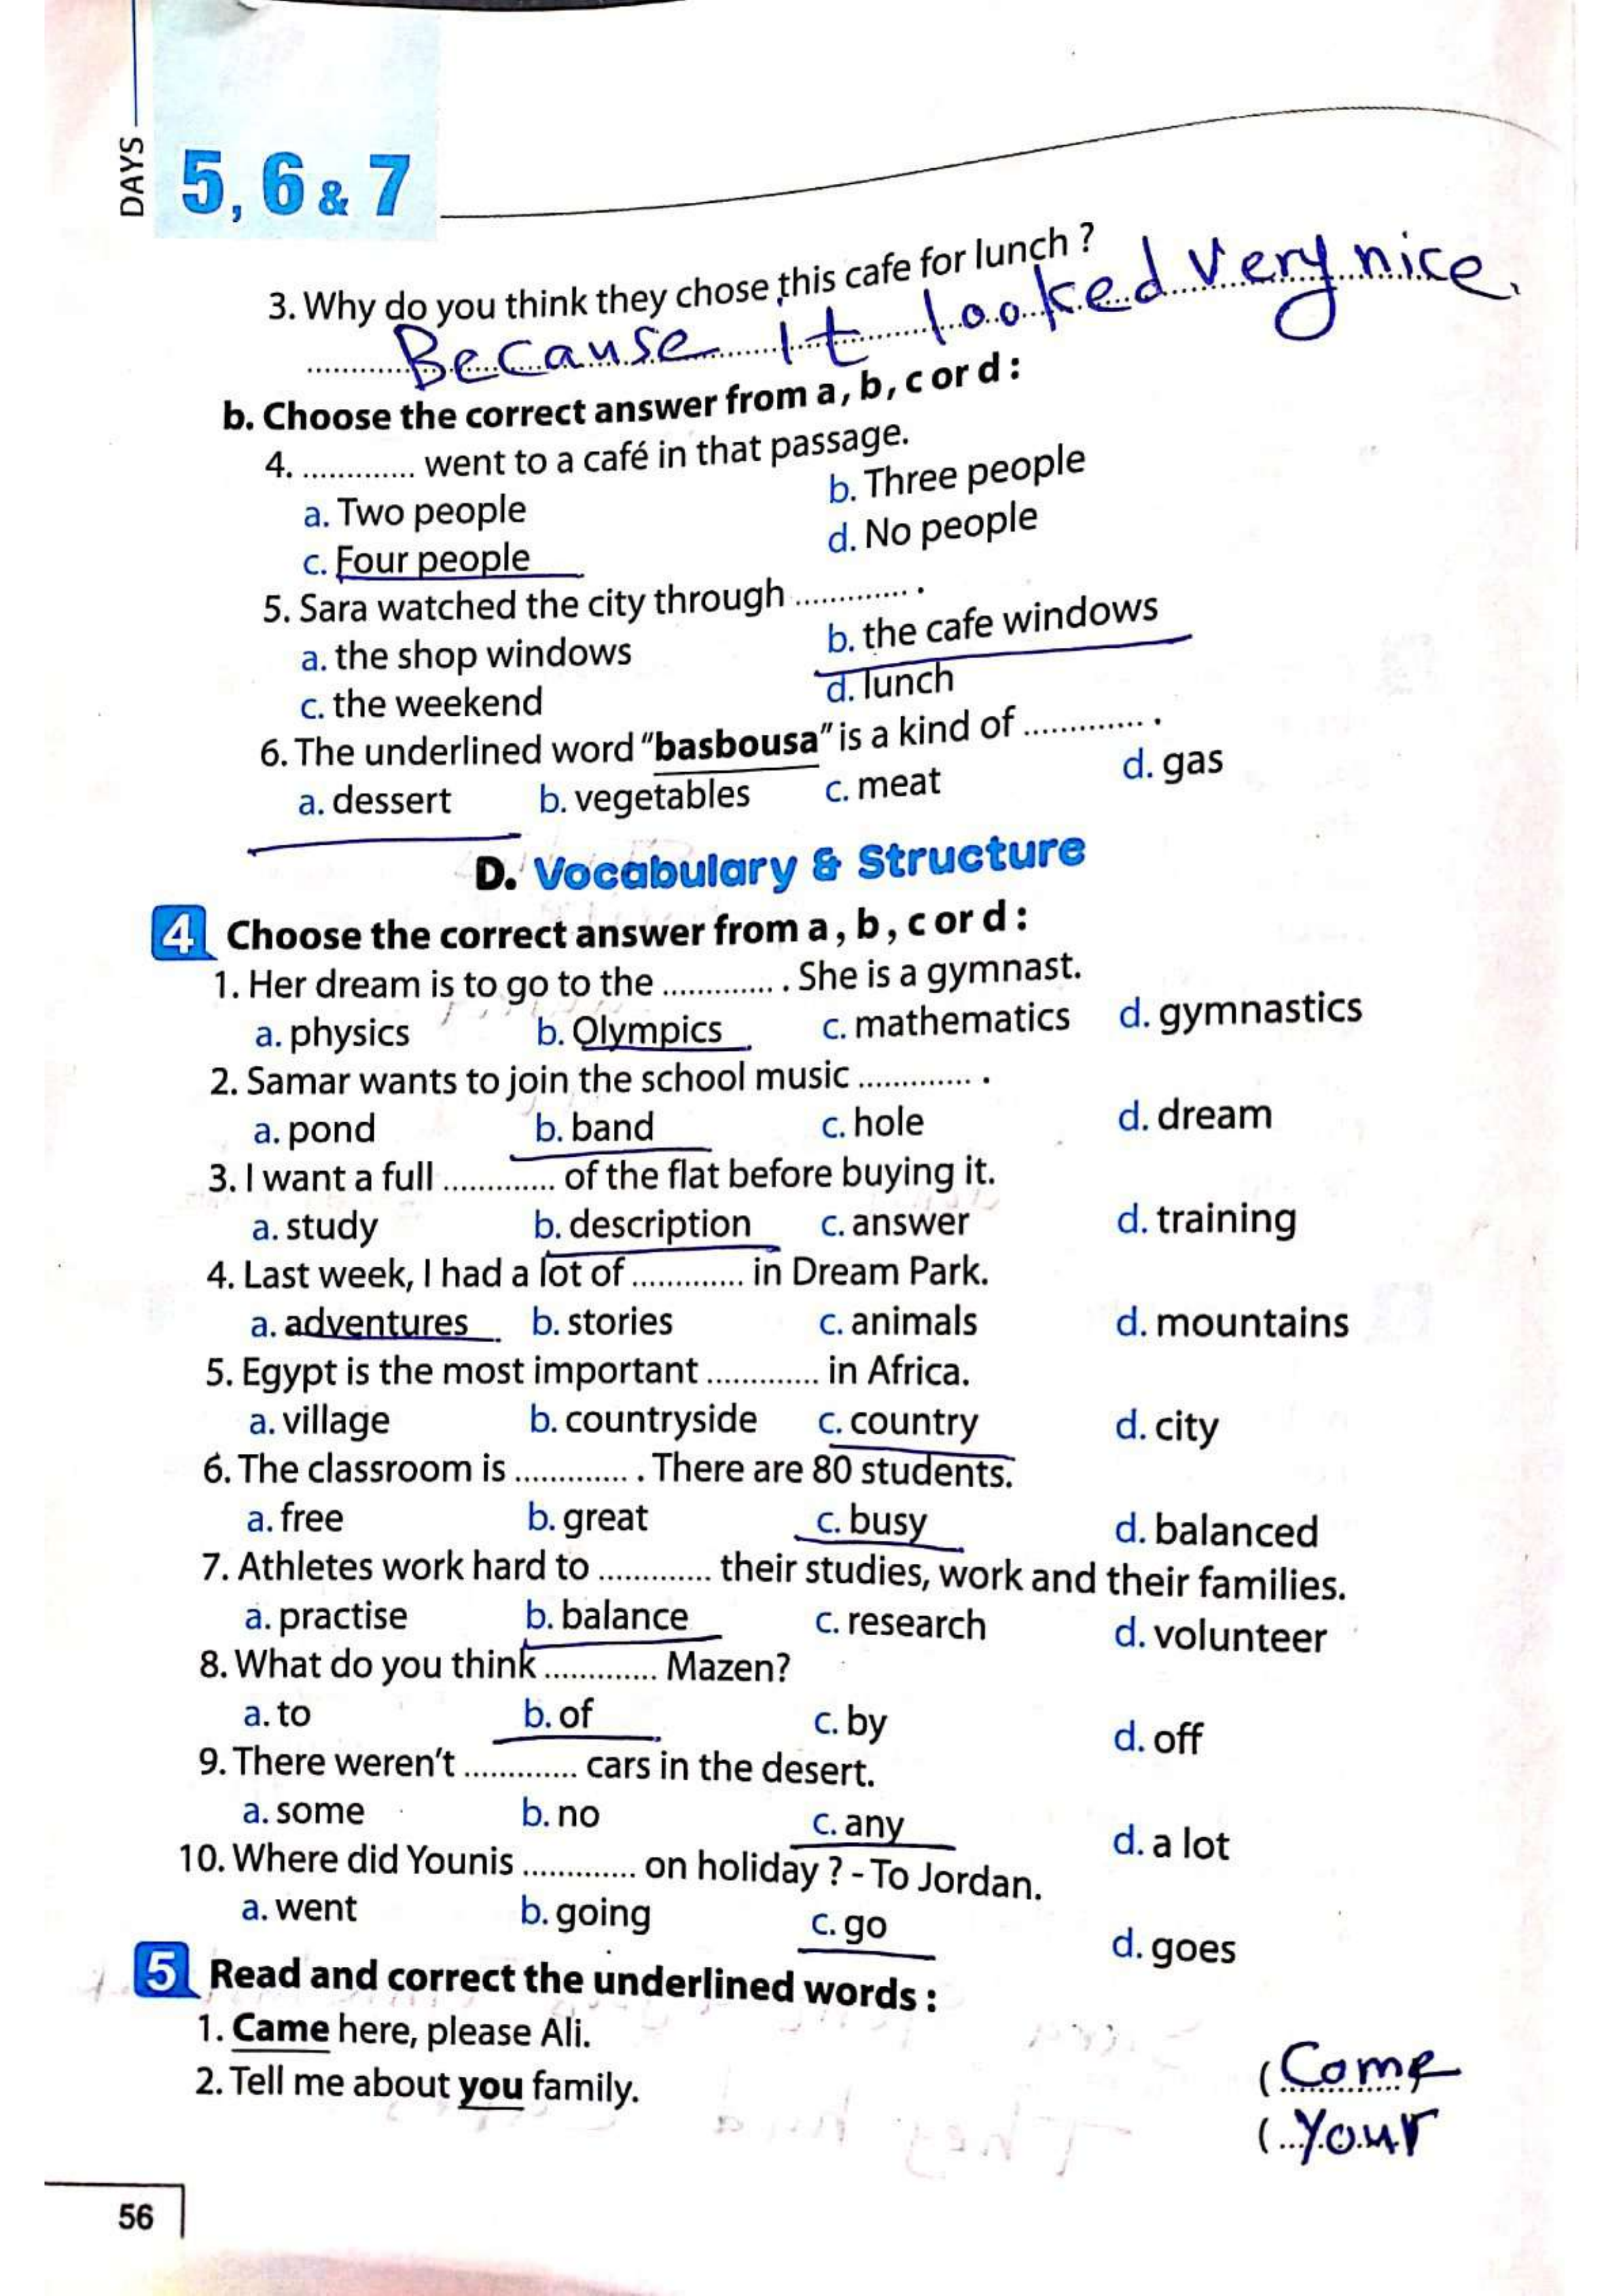 DAYS
5, 6 & 7
3. Why do you think they chose this cafe for lunch ?
Because It looked very nice.
b. Choose the correct answer from a, b, c or d :
4. ............. went to a café in that passage.
a. Two people b. Three people
c. Four people d. No people
5. Sara watched the city through ............. .
a. the shop windows b. the cafe windows
c. the weekend d. lunch
6. The underlined word "basbousa" is a kind of ............. .
a. dessert b. vegetables c. meat d. gas
D. Vocabulary & Structure
4 Choose the correct answer from a, b, c or d :
1. Her dream is to go to the ............. . She is a gymnast.
a. physics b. Olympics c. mathematics d. gymnastics
2. Samar wants to join the school music ............. .
a. pond b. band c. hole d. dream
3. I want a full ............. of the flat before buying it.
a. study b. description c. answer d. training
4. Last week, I had a lot of ............. in Dream Park.
a. adventures b. stories c. animals d. mountains
5. Egypt is the most important ............. in Africa.
a. village b. countryside c. country d. city
6. The classroom is ............. . There are 80 students.
a. free b. great c. busy d. balanced
7. Athletes work hard to ............. their studies, work and their families.
a. practise b. balance c. research d. volunteer
8. What do you think ............. Mazen?
a. to b. of c. by d. off
9. There weren't ............. cars in the desert.
a. some b. no c. any d. a lot
10. Where did Younis ............. on holiday ? - To Jordan.
a. went b. going c. go d. goes
5 Read and correct the underlined words :
1. Came here, please Ali. (Come
2. Tell me about you family. (Your
56